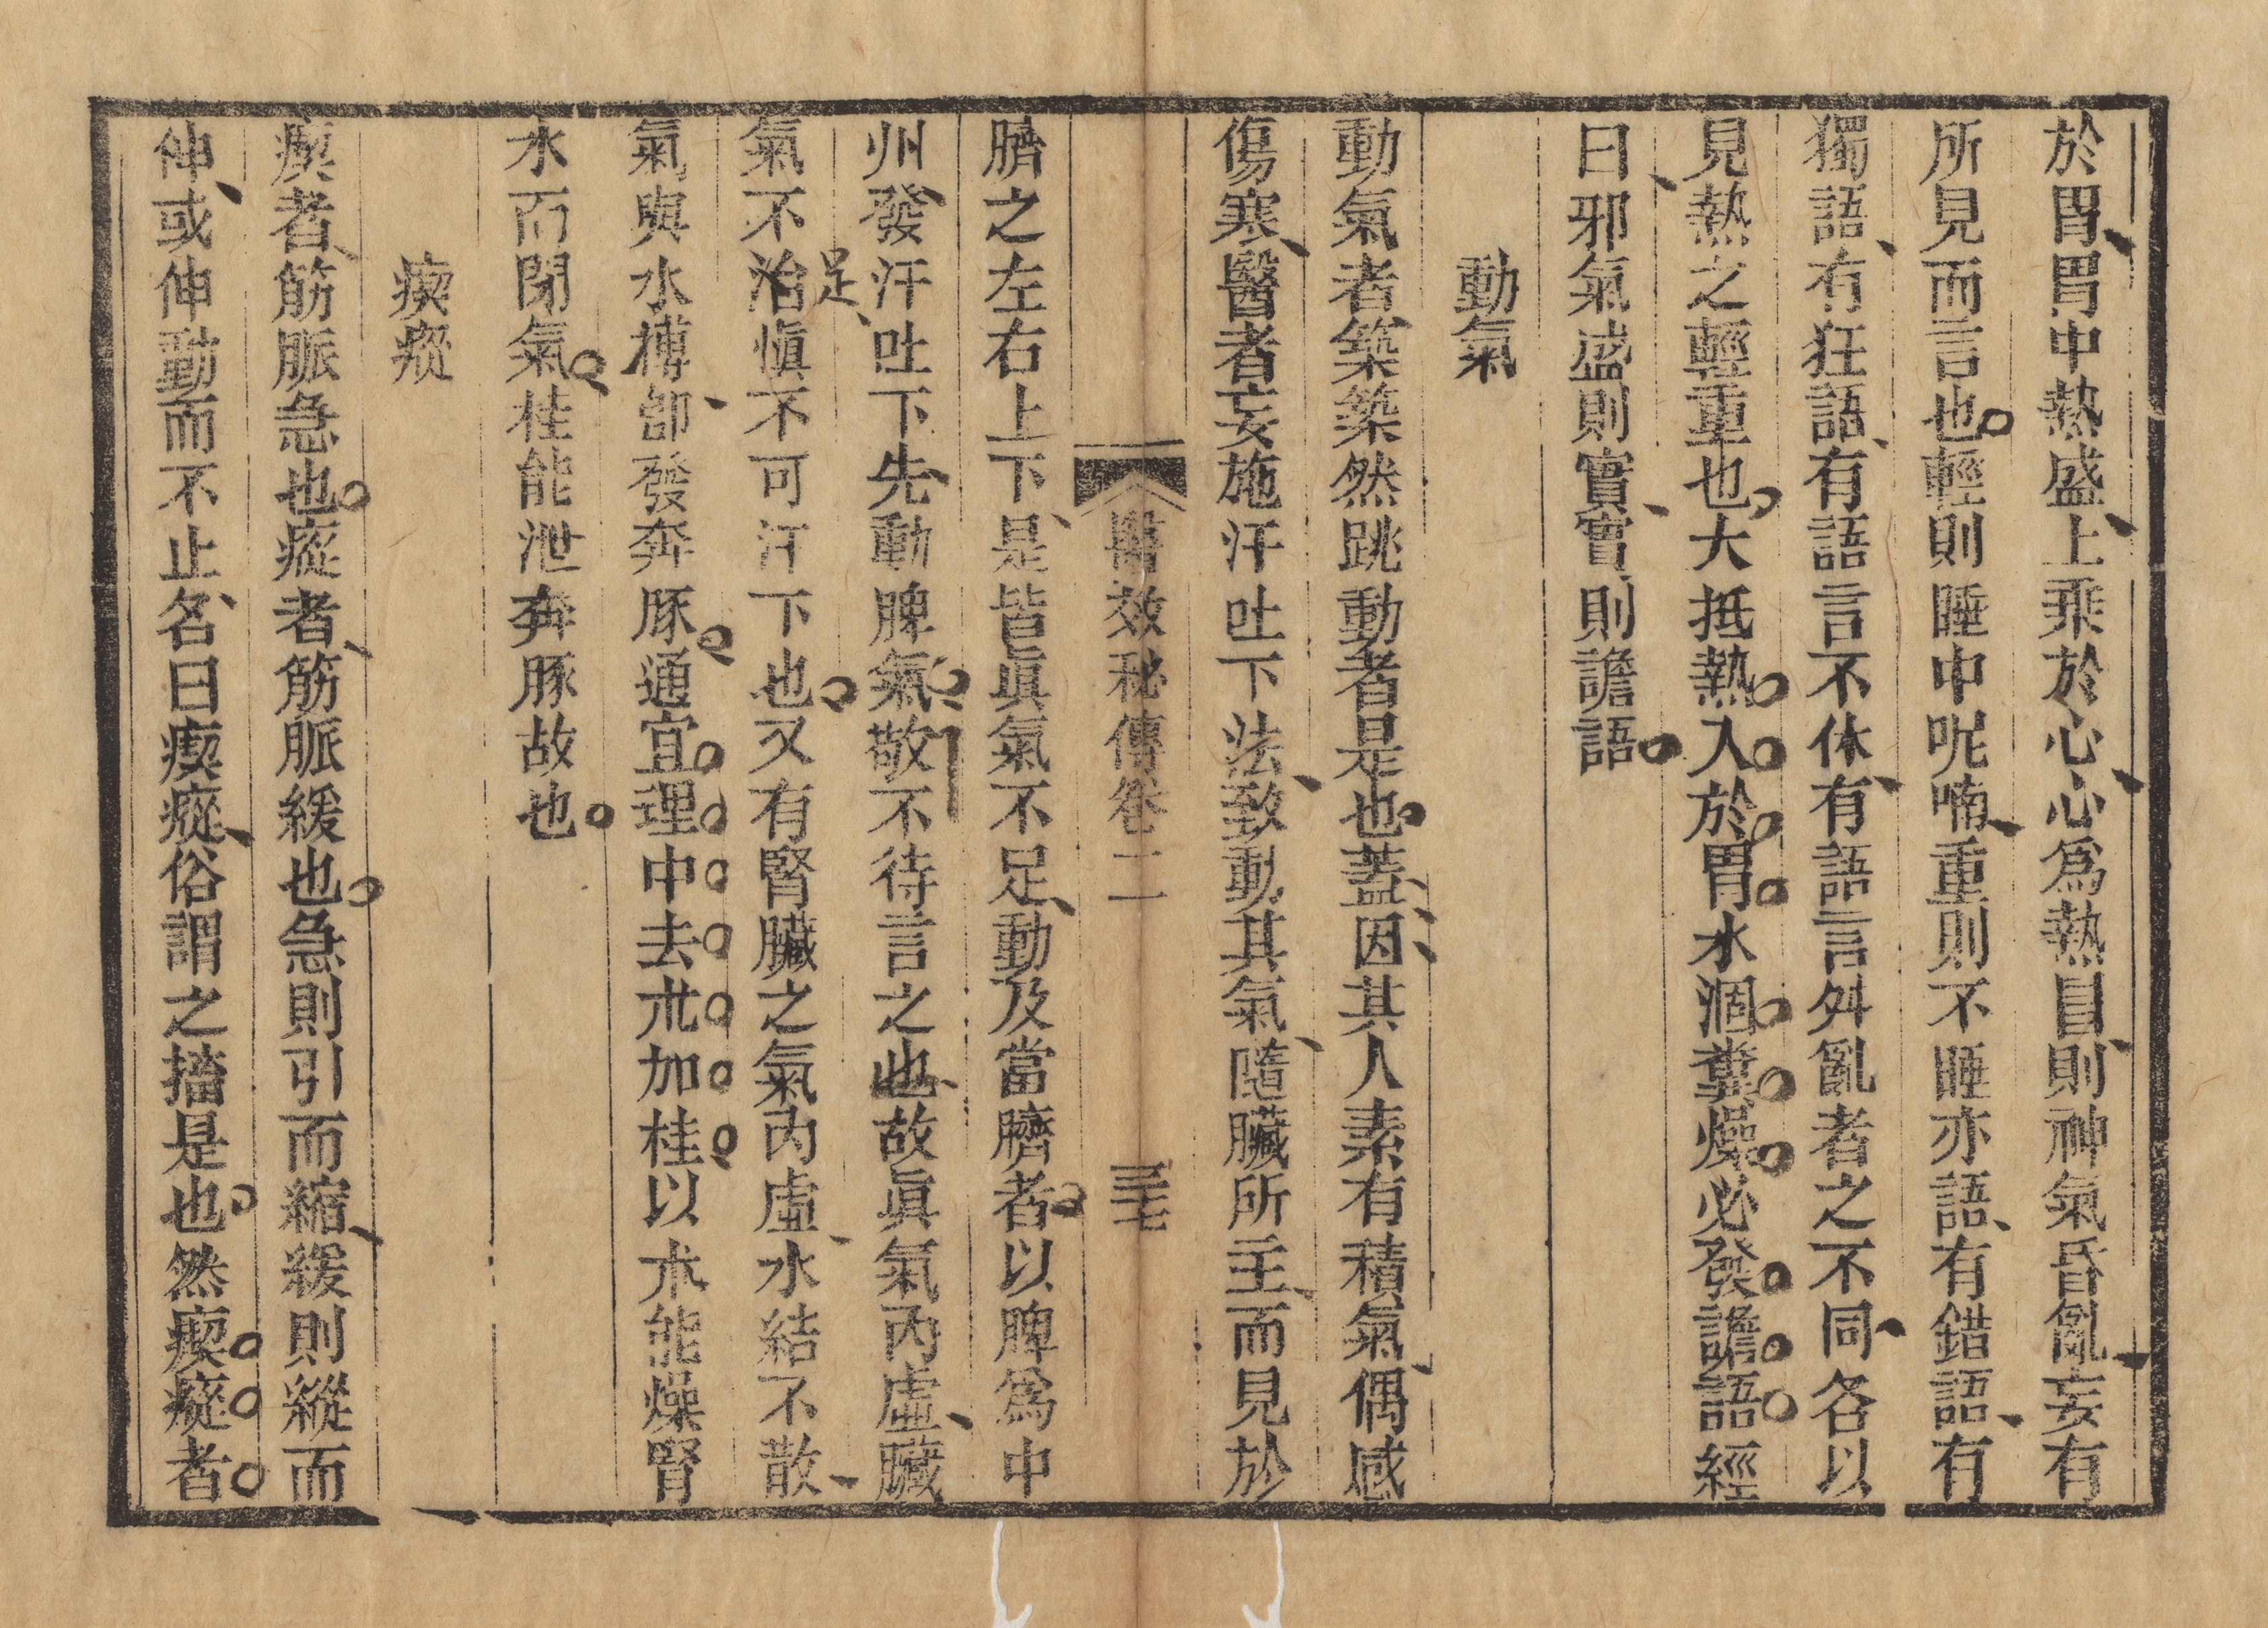 於胃胃中熱盛上乘於心心爲熱冒則神氣昏亂妄有
所見而言也輕則睡中呢喃重則不睡亦語有錯語有
獨語有狂語有語言不休有語言舛亂者之不同各以
見熱之輕重也大抵熱入於胃水涸糞燥必發譫語經
曰邪氣盛則實實則譫語
動氣
動氣者築築然跳動者是也蓋因其人素有積氣偶感
傷寒醫者妄施汗吐下法致動其氣隨臟所主而見於
醫效秘傳卷二 三七
臍之左右上下是皆眞氣不足動及當臍者以脾爲中
州發汗吐下先動脾氣敬不待言之也故眞氣內虛臟
足
氣不治慎不可汗下也又有腎臟之氣內虛水結不散
氣與水搏卽發奔豚通宜理中去朮加桂以朮能燥腎
水而閉氣桂能泄奔豚故也
瘈瘲
瘈者筋脈急也瘲者筋脈緩也急則引而縮緩則縱而
伸或伸動而不止名曰瘈瘲俗謂之搐是也然瘈瘲者